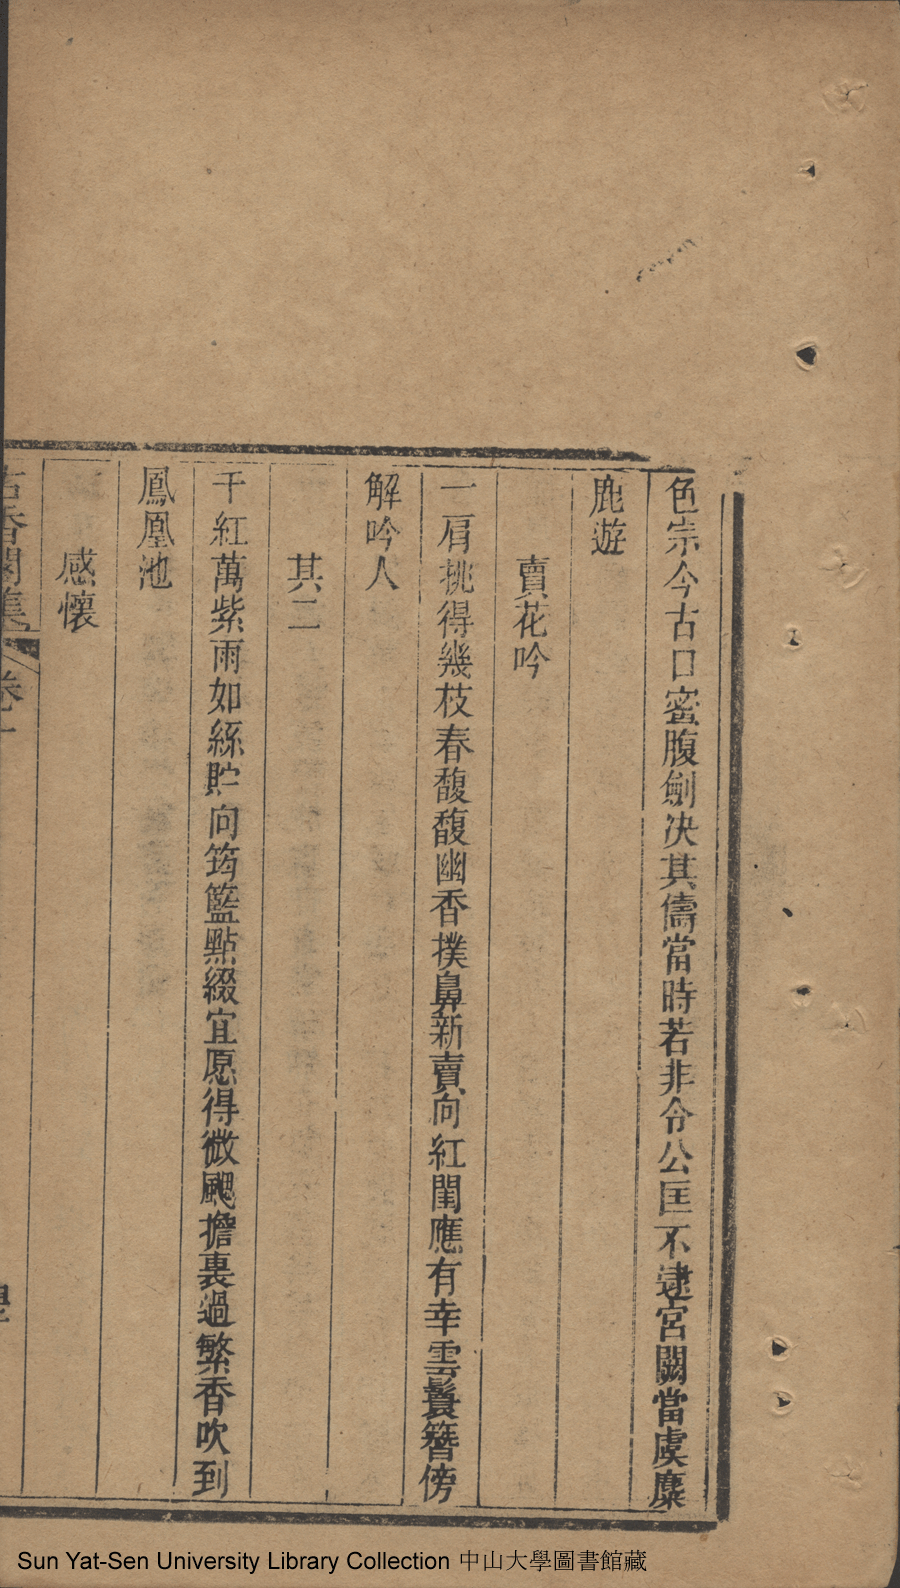 色崇今古口蜜腹劍决其儔當時若非令公匡不逮宮闕當虞麋
鹿遊
賣花吟
一肩挑得幾枝春馥馥幽香撲鼻新賣向紅閨應有幸雲鬟簪傍
解吟人
其二
千紅萬紫雨如絲貯向筠籃點綴宜愿得微颸擔裏過繁香吹到
鳳凰池
感懷
香閣集
卷
Sun Yat-Sen University Library Collection 中山大學圖書館藏